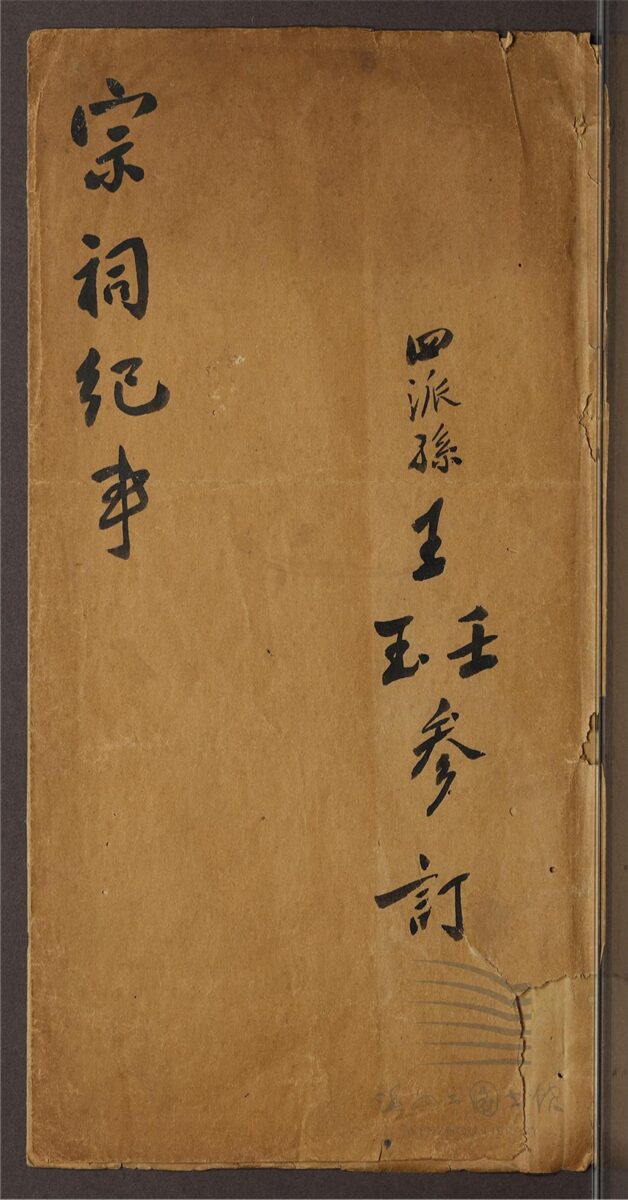 四派孫王壬玉参訂
宗祠紀事